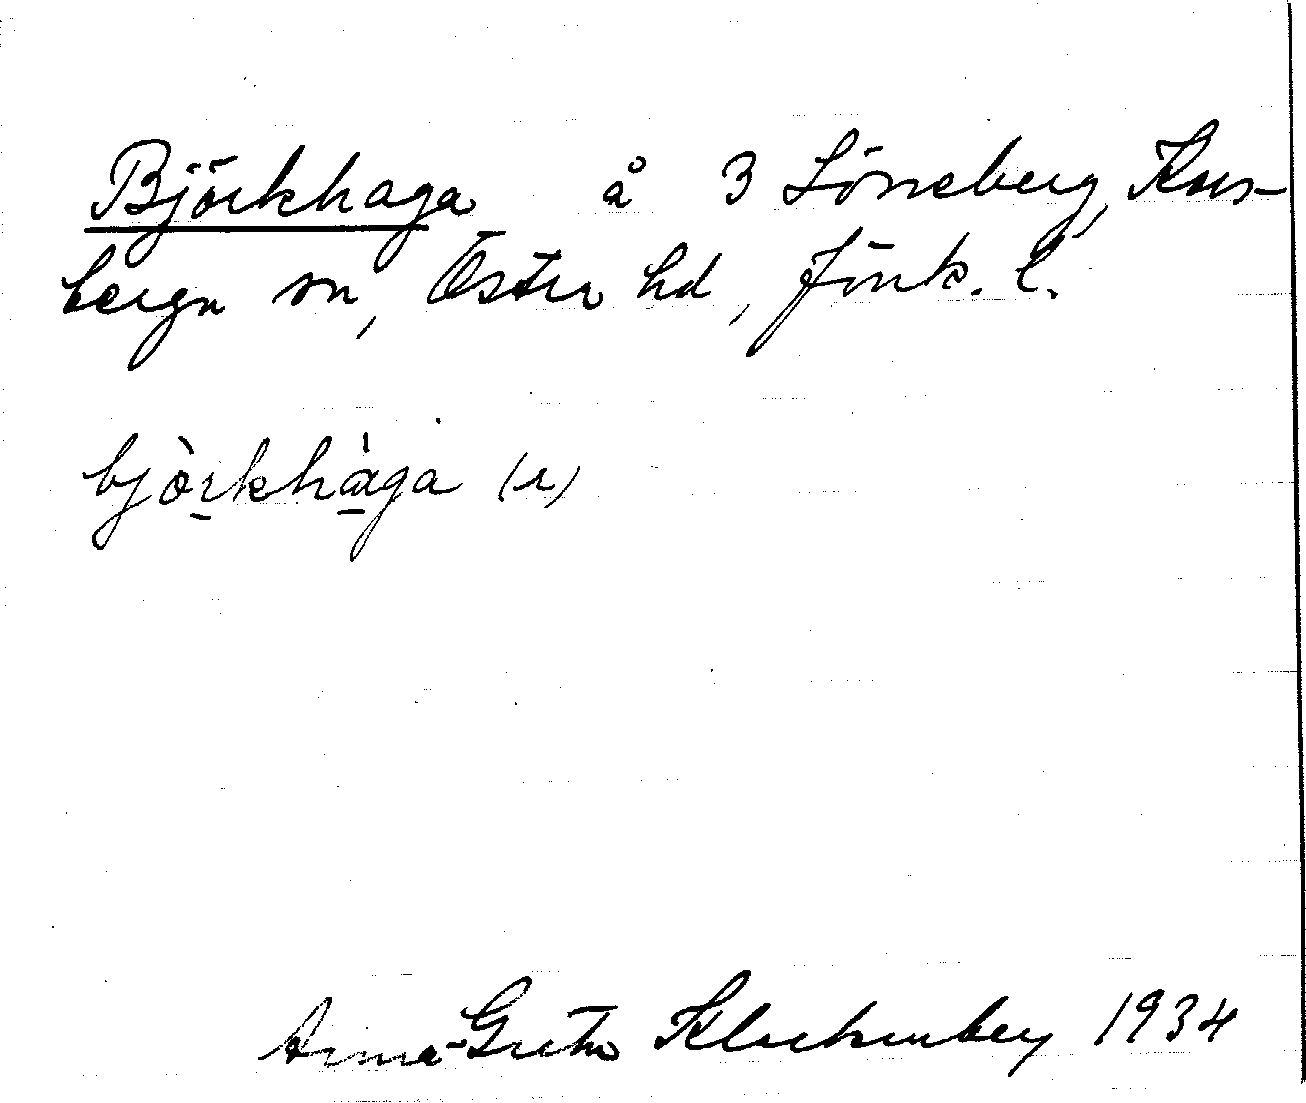 Björkhaga å 3 Löneberg, Kors-
berga sn, Östra hd, Jönk. l.
bjòrkhàga (r)
Anna-Greta Klockenberg 1934